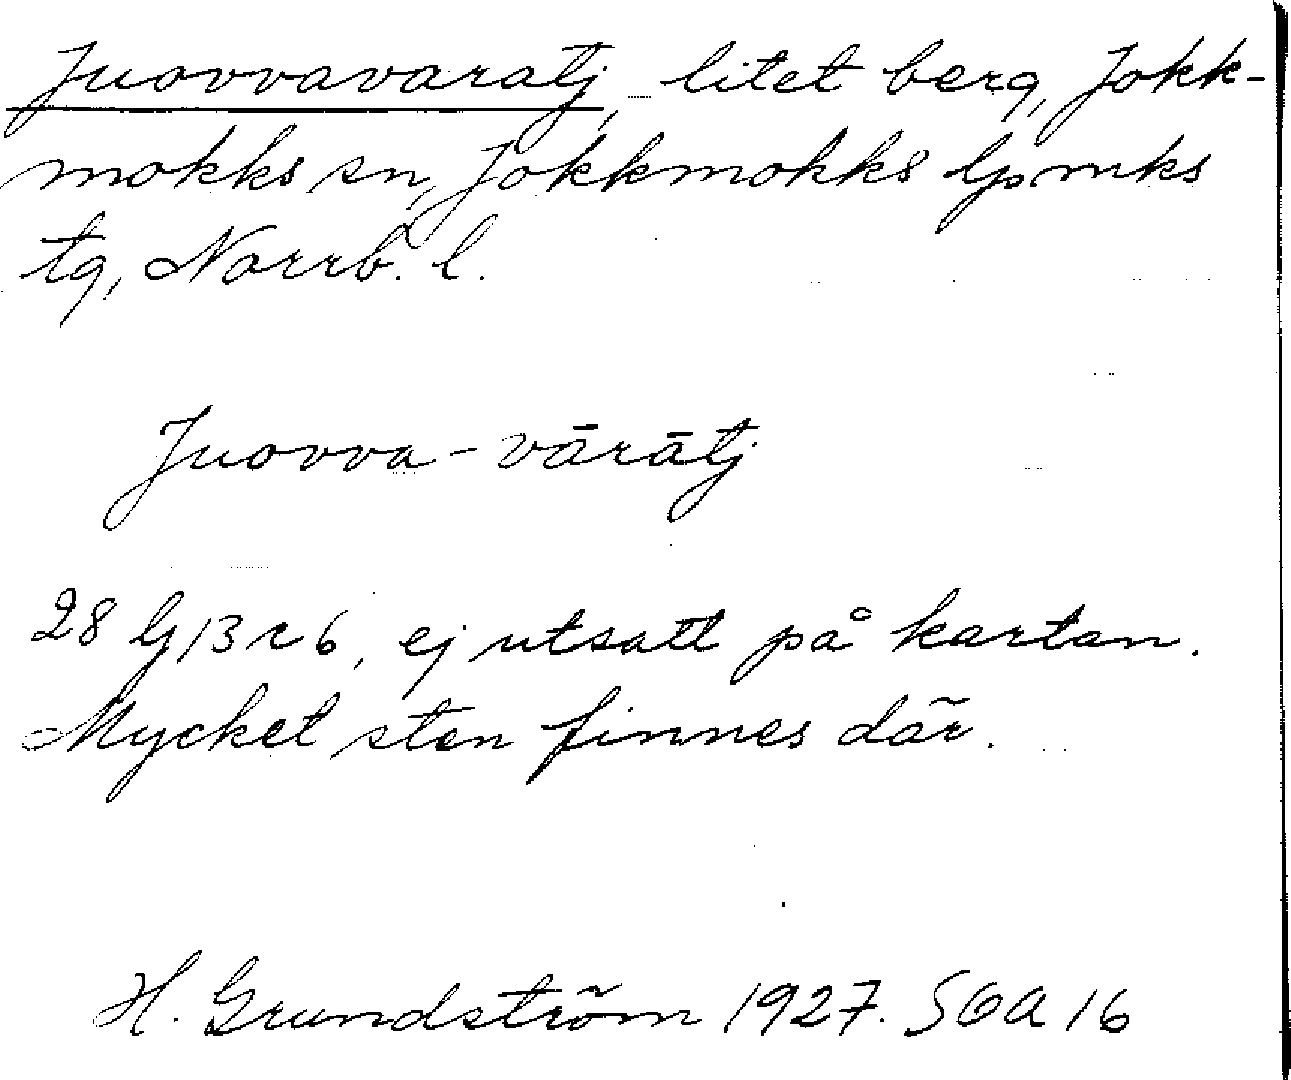 Juovvavaratj, litet berg, Jokk-
mokks sn, Jokkmokks lpmks
tg, Norrb. l.
Juovva-vārātj
28 lj 13 r 6, ej utsatt på kartan.
Mycket sten finnes där.
H. Grundström 1927. SOA 16